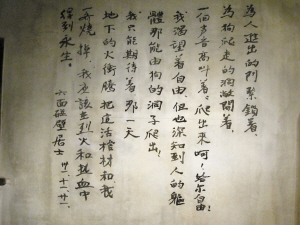 為人進出的門紧鎖着,
為狗爬走的洞敞開着,
一個声音高叫着:爬出来呵!给尔自由!
我渴望着自由,但也深知到人的軀
體那能由狗的洞子爬出!
我只能期待着,那一天
地下的火衝騰,把這活棺材和我
一齊燒掉,我应該在烈火和热血中
得到永生。
六面碰壁居士 卅一.十一.廿一.